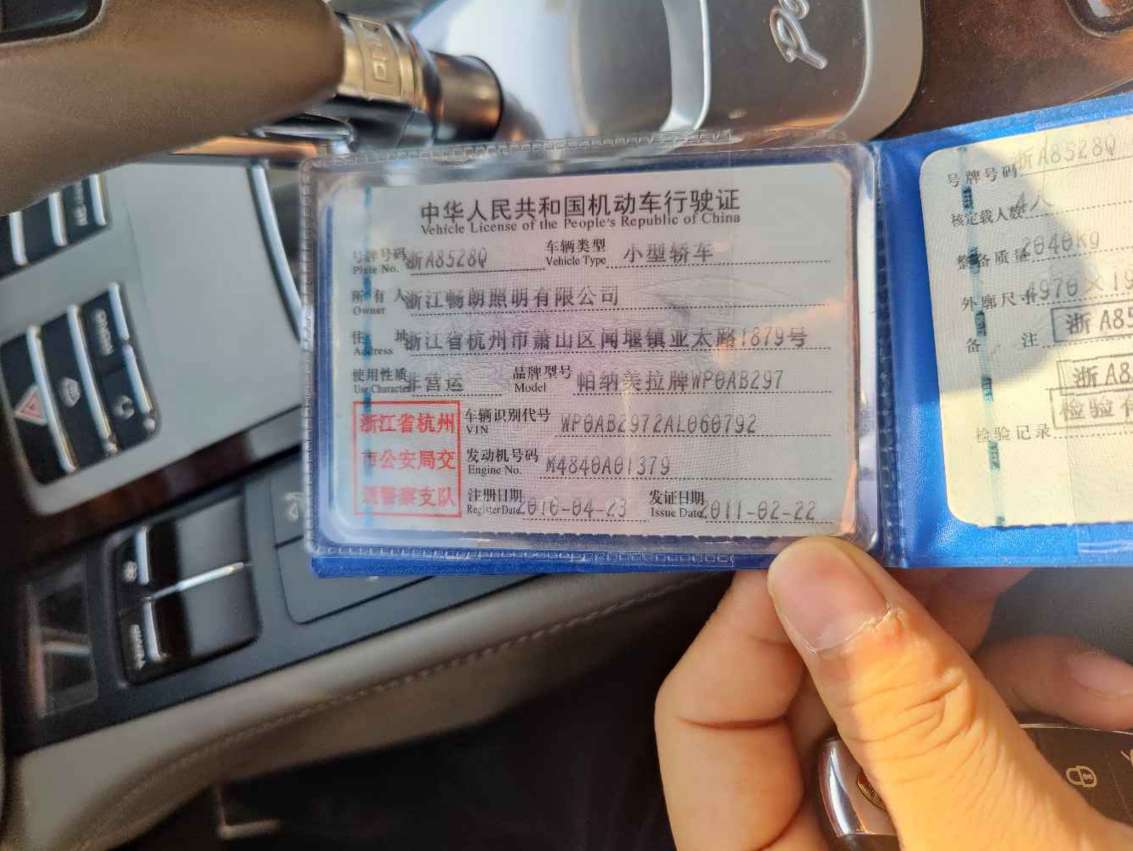 中华人民共和国机动车行驶证
Vehicle License of the People's Republic of China
号牌号码 浙A8528Q 车辆类型 小型轿车
Plate No. Vehicle Type
所有人 浙江畅朗照明有限公司
Owner
住址 浙江省杭州市萧山区闻堰镇亚太路1879号
Address
使用性质 非营运 品牌型号 帕纳美拉牌WP0AB297
Use Character Model
浙江省杭州
市公安局交
通警察支队
车辆识别代号 WP0AB2972AL060792
VIN
发动机号码 M4840A01379
Engine No.
注册日期 2010-04-23 发证日期 2011-02-22
Register Date Issue Date
号牌号码 浙A8528Q
核定载人数
整备质量 2040kg
外廓尺寸 4970×19
备注 浙A85
浙A8
检验有
检验记录